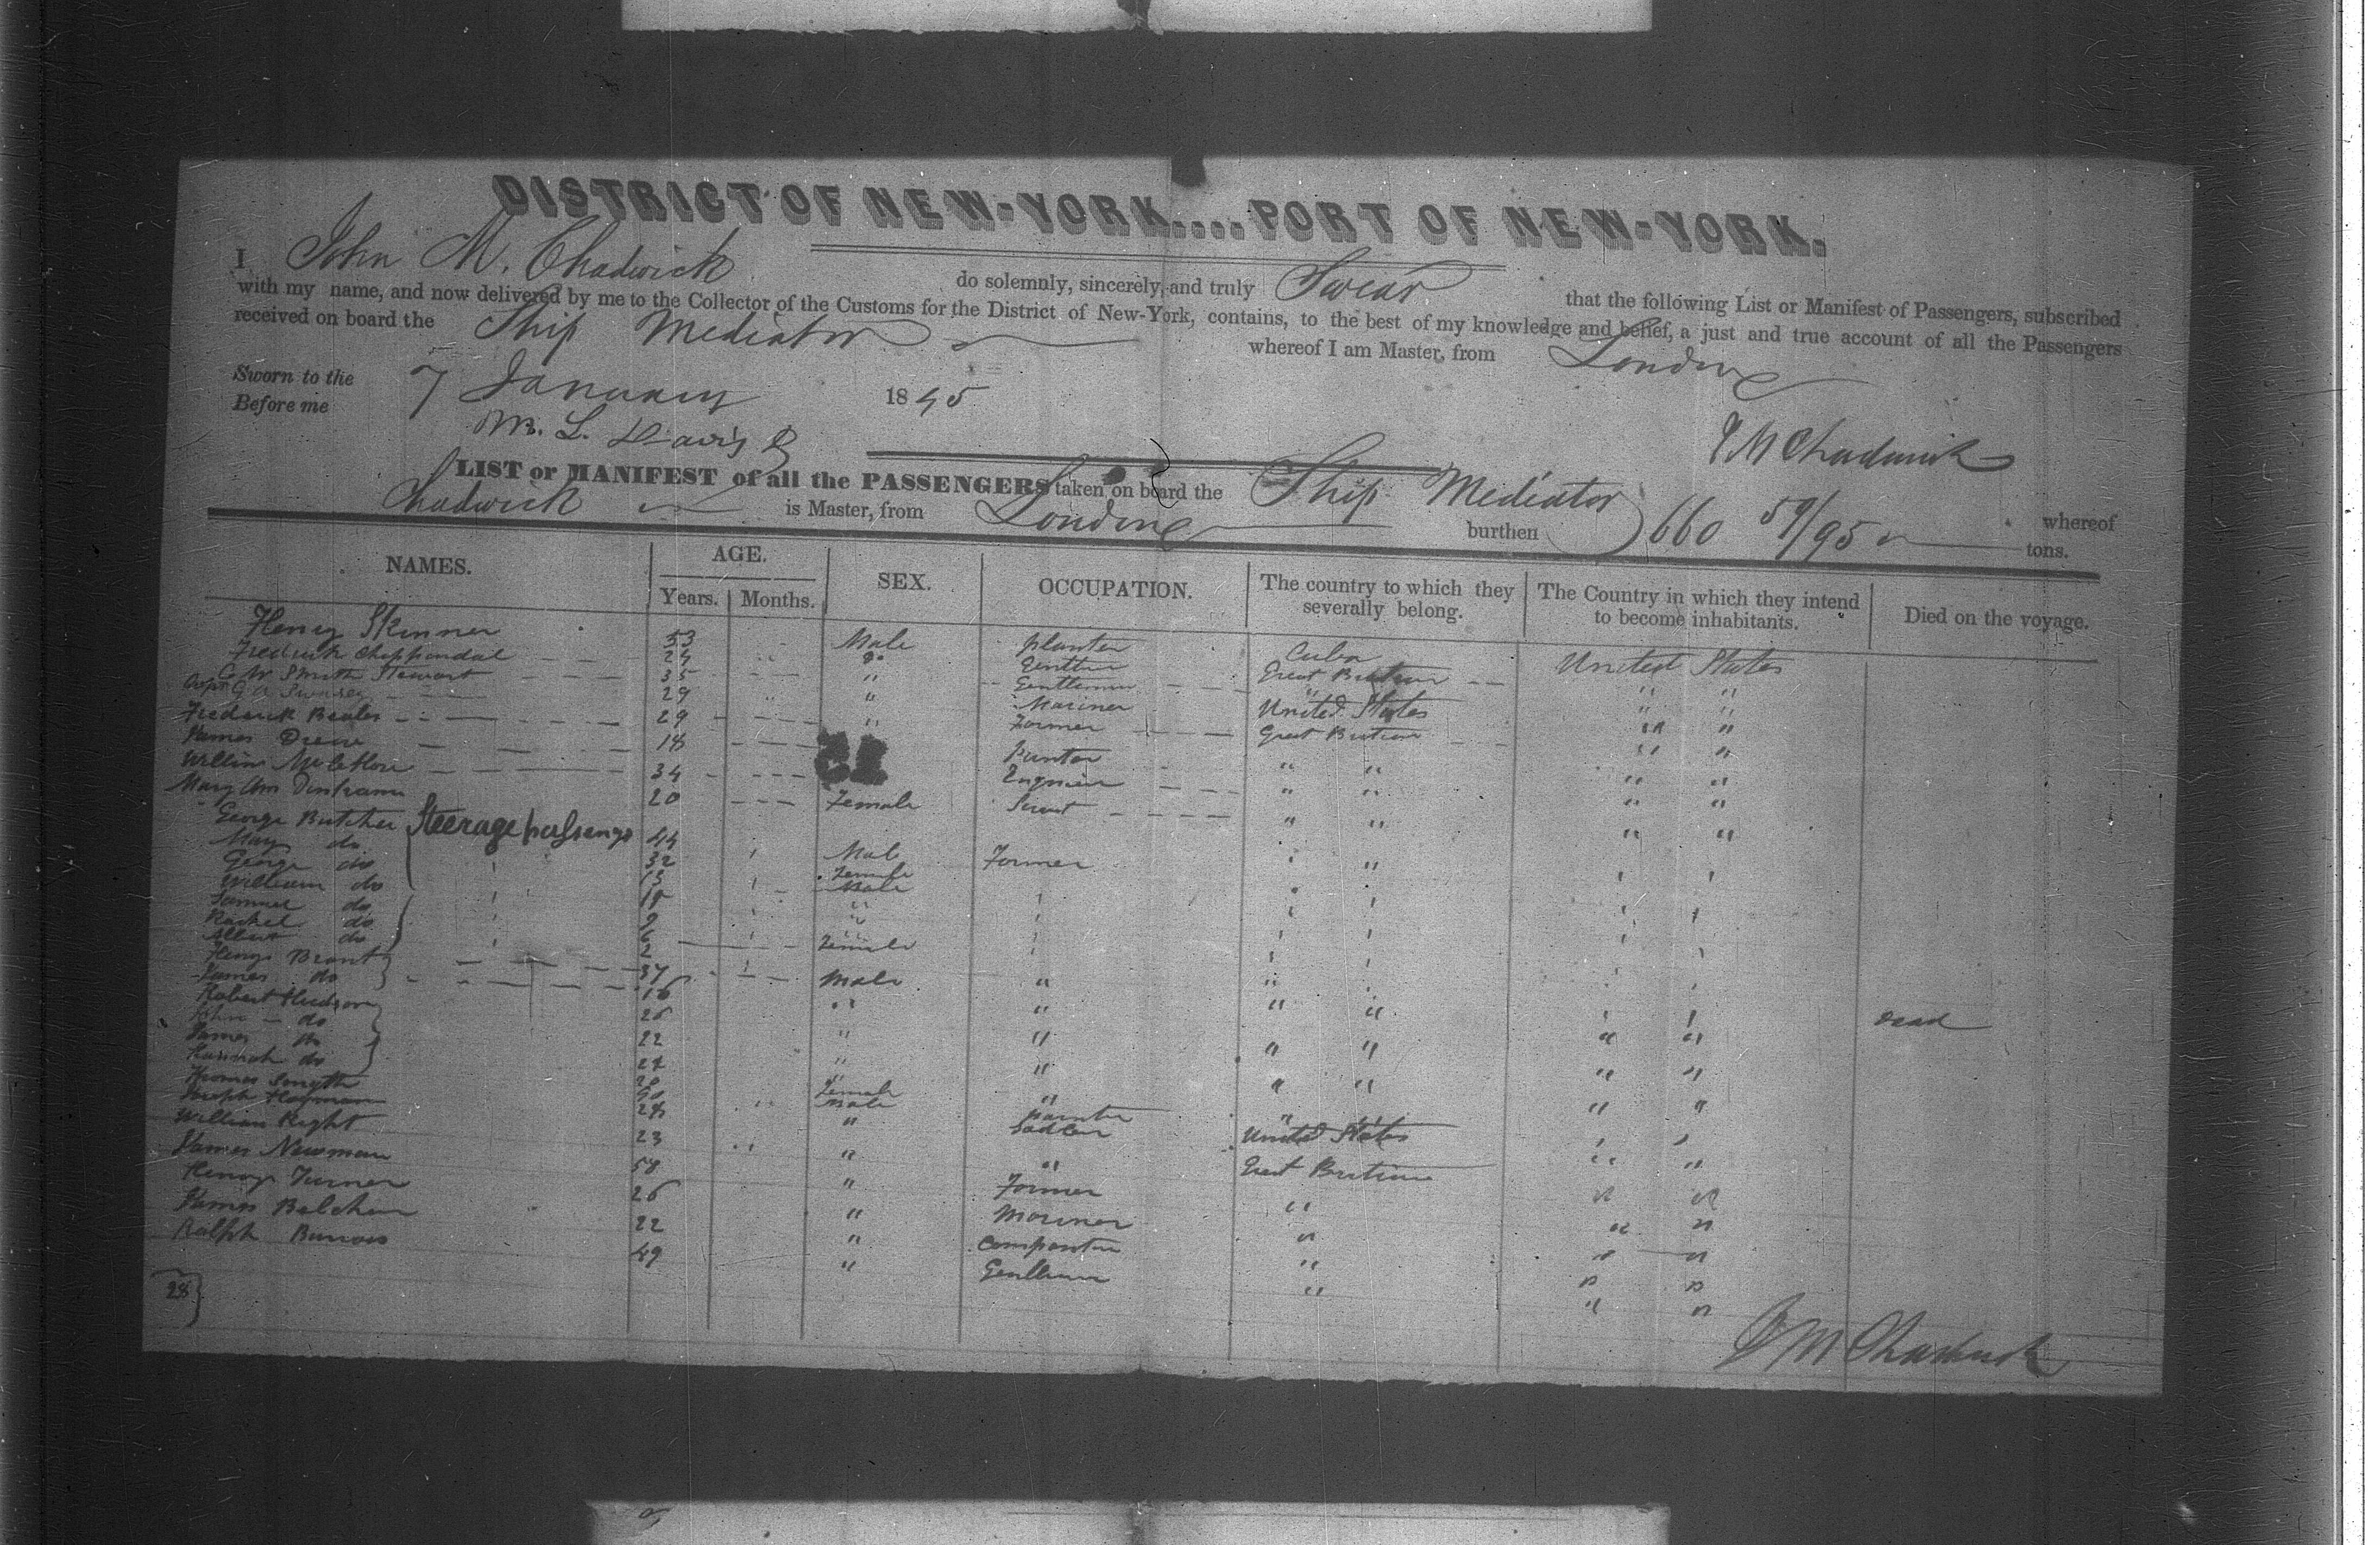 DISTRICT OF NEW-YORK....PORT OF NEW-YORK.
I John M. Chadwick do solemnly, sincerely, and truly Swear that the following List or Manifest of Passengers, subscribed
with my name, and now delivered by me to the Collector of the Customs for the District of New-York, contains, to the best of my knowledge and belief, a just and true account of all the Passengers
received on board the Ship Mediator whereof I am Master, from London
Sworn to the 7 January 1845
Before me M. L. Davis
J M Chadwick
LIST or MANIFEST of all the PASSENGERS taken on board the Ship Mediator whereof
Chadwick is Master, from London burthen 660 59/95 tons.
NAMES. AGE. SEX. OCCUPATION. The country to which they severally belong. The Country in which they intend to become inhabitants. Died on the voyage.
Years. Months.
Henry Skinner 53 Male planter Cuba United States
Frederick Chippendal 24 Do Great Britain " "
C W Smith Stewart 35 " Gentleman " "
Capt G A 29 " Mariner United States " "
Frederick Beales 29 " Farmer Great Britain " "
James Drew 18 Painter " " " "
William 34 Engineer " " " "
Mary Ann 20 Female Servt " " " "
Steerage passengs
George Butcher 44 Male Farmer " "
Mary do 32 Female
George do 13 Male
William do "
Samuel do 9 "
Rachel do 6
Albert do 2 Female
Henry Brant 37 Male " "
James do 16 " " " "
Robert Hudson 26 " " " " Dead
John do 22 " " " "
James do 24 " " " "
Hannah do 20 Female "
Thomas Smyth Male painter " "
Joseph Hayman 28 " Sadler United States
William Right 23 " " Great Britain " "
James Newman 58 " Farmer " " "
Henry Turner 26 " Mariner " " "
James Belcham 22 " Carpenter " " "
Ralph Burrows 49 " Gentleman " " "
28
J M Chadwick